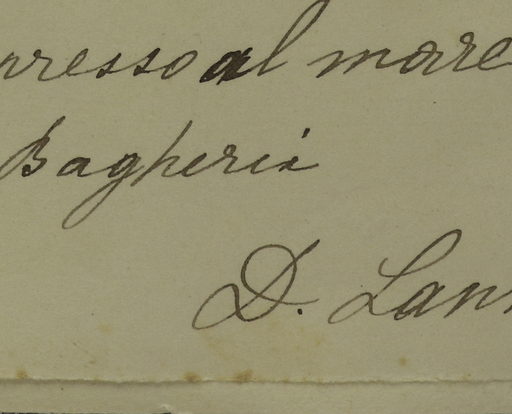 presso al mare
Bagheria
D. Lan